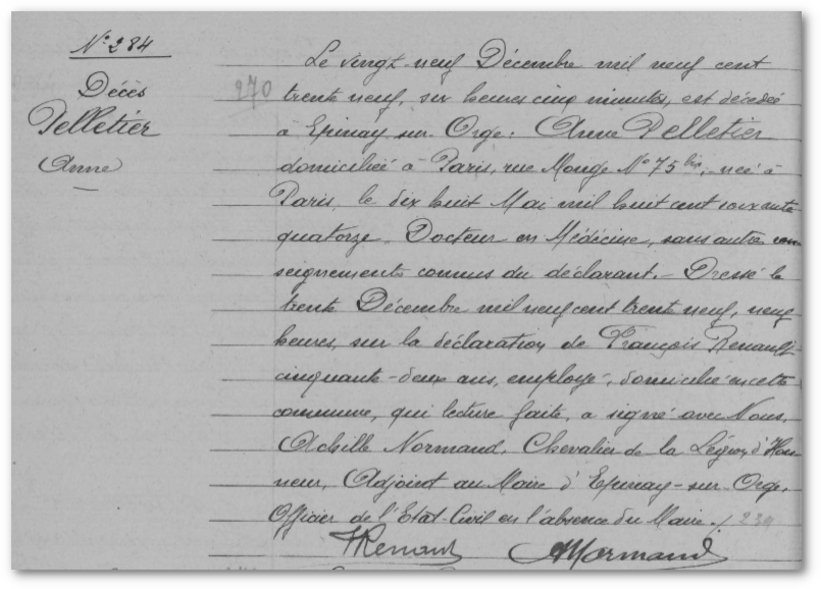 N° 284
Décès
Pelletier
(Anne)
270
Le vingt-neuf Décembre mil neuf cent
trente neuf, six heures cinq minutes, est décédée
à Epinay-sur-Orge: Anne Pelletier
domiciliée à Paris, rue Monge N° 75 bis, née à
Paris, le dix huit Mai mil huit cent soixante
quatorze. Docteur en Médecine, sans autre ren-
seignements connus du déclarant. - Dressé le
trente Décembre mil neuf cent trente neuf, neuf
heures, sur la déclaration de François Renault
cinquante-deux ans, employé, domicilié en cette
commune, qui lecture faite, a signé avec Nous,
Achille Normand, Chevalier de la Légion d'Hon-
neur, Adjoint au Maire d'Epinay-sur-Orge,
Officier de l'Etat-Civil en l'absence du Maire./.
Renault ANormand